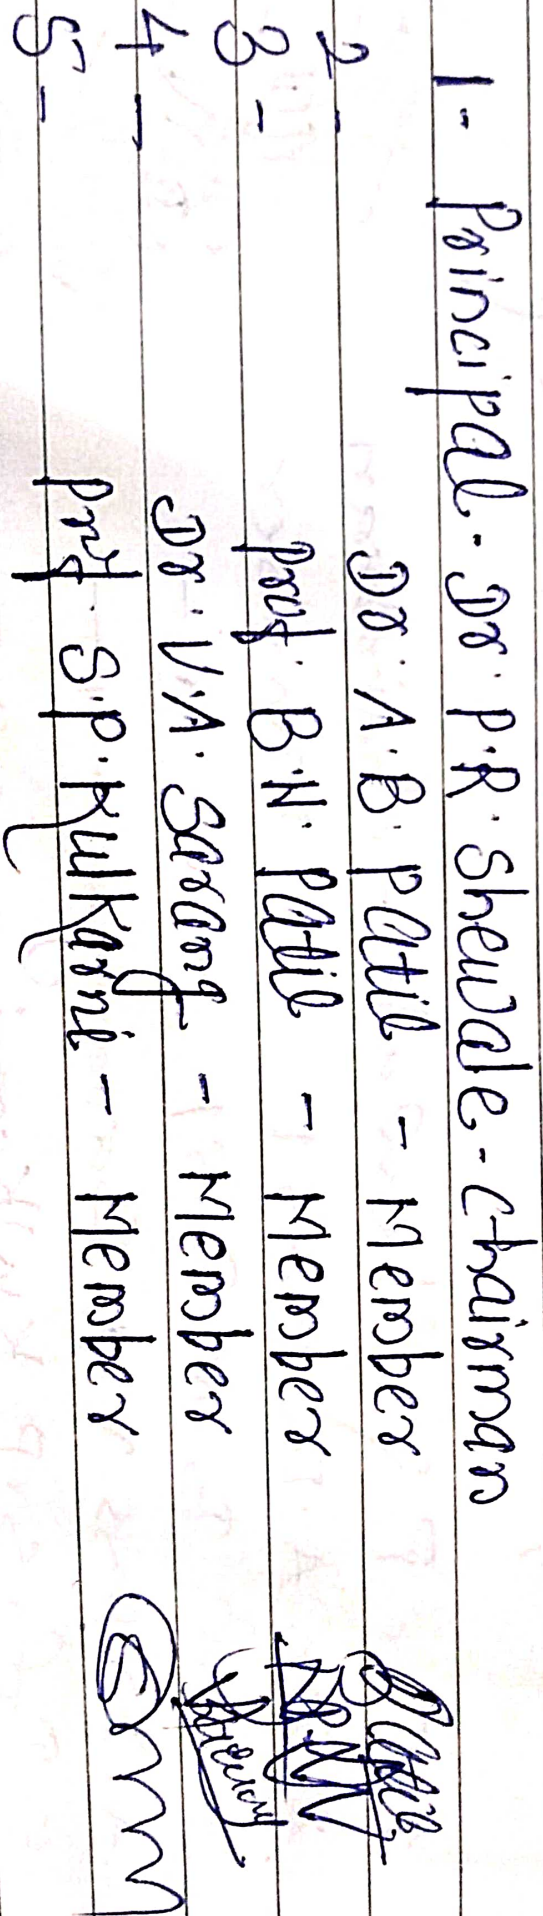 1- Principal - Dr. P.R. Shewale - chairman
2- Dr. A.B. Patil - Member
3- Prof. B.N. Patil - Member
4- Dr. V.A. Sarang - Member
5- Prof. S.P. Kulkarni - Member